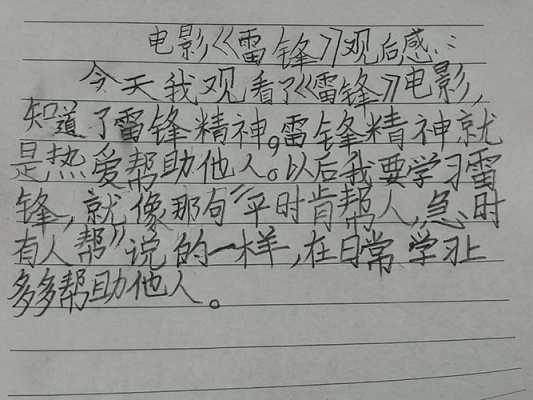 电影《雷锋》观后感:
今天我观看了《雷锋》电影,
知道了雷锋精神。雷锋精神就
是热爱帮助他人。以后我要学习雷
锋,就像那句“平时肯帮人,急时
有人帮”说的一样,在日常学习上
多多帮助他人。